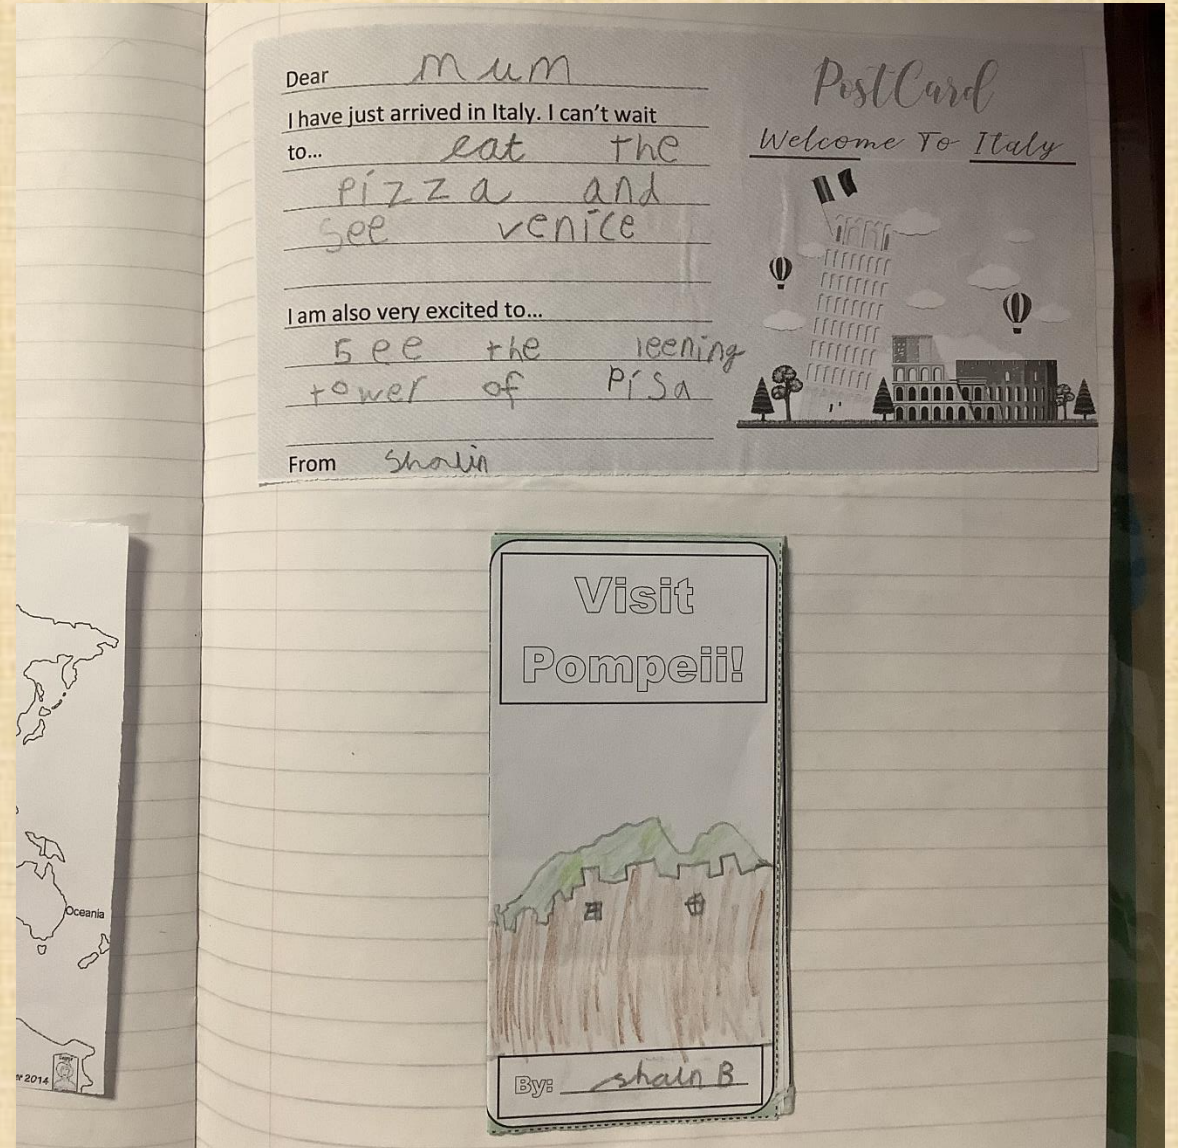 Dear mum
I have just arrived in Italy. I can't wait
to... eat the
pizza and
see venice
I am also very excited to...
see the leening
tower of Pisa
From Shalin
PostCard
Welcome To Italy
Visit
Pompeii!
By: shalin B
Oceania
2014